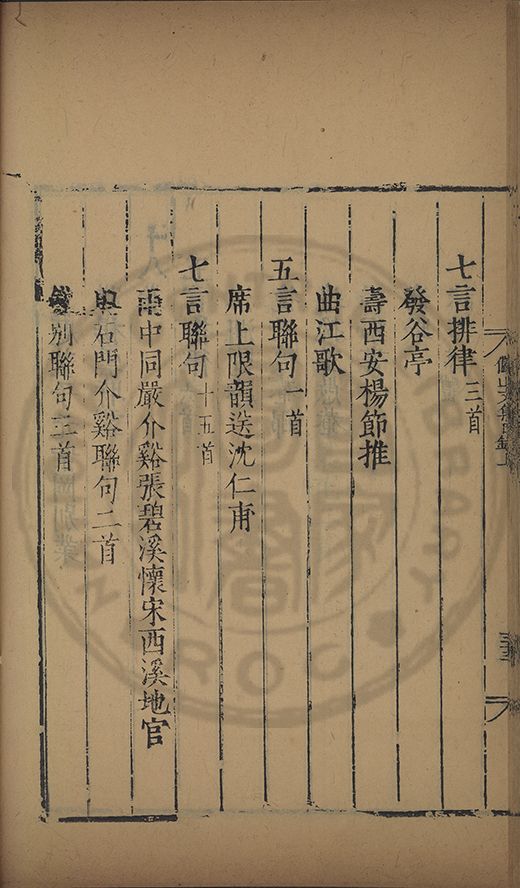 七言排律三首
發谷亭
壽西安楊節推
曲江歌
五言聯句一首
席上限韻送沈仁甫
七言聯句十五首
雨中同嚴介谿張碧溪懷宋西溪地官
與石門介谿聯句二首
別聯句三首